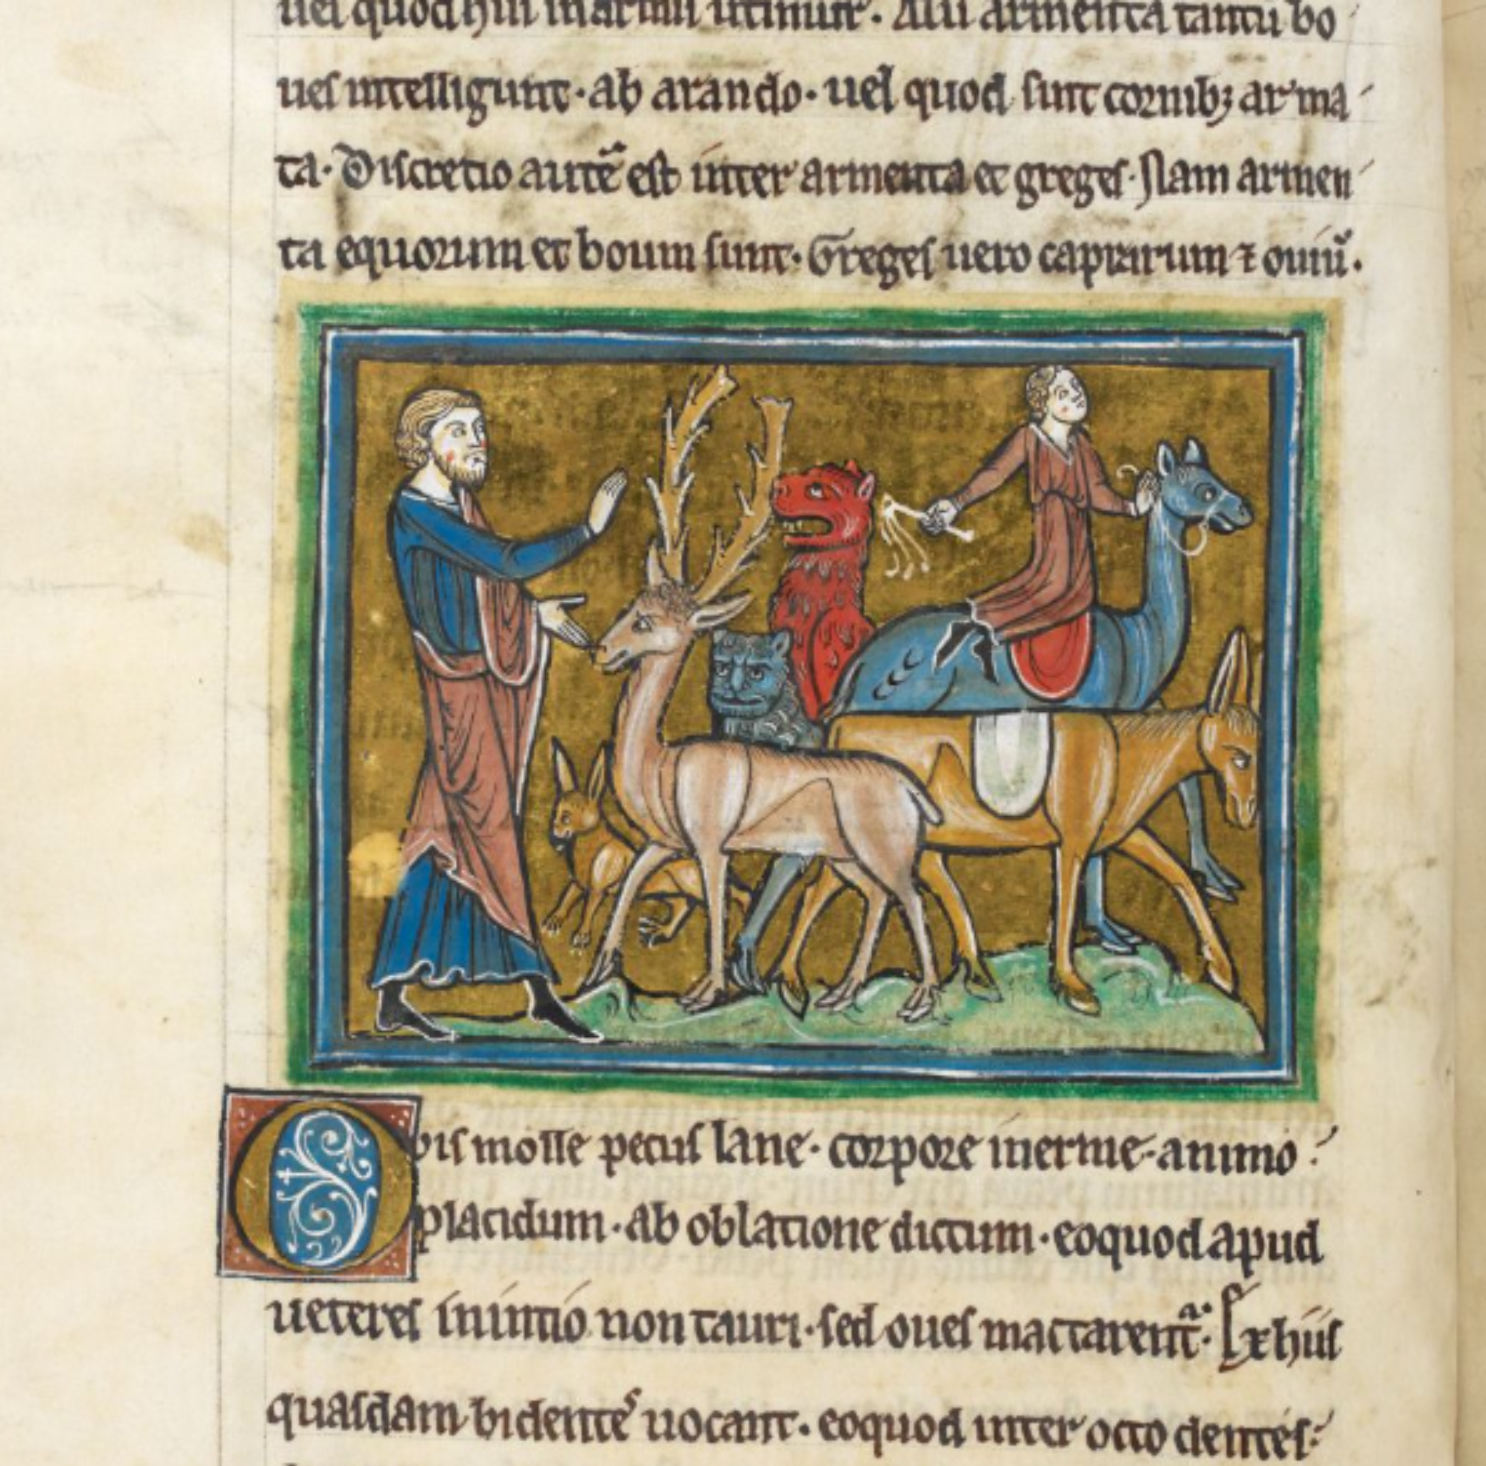 uel quod hiis in armis utimur. Alii armenta tantū bo
ues intelligunt. ab arando. uel quod sunt cornibꝫ arma
ta. Discretio autē est inter armenta et greges. Nam armen
ta equorum et boum sunt. Greges uero caprarum ⁊ ouiū.
Ouis molle pecus lane. corpore inerme. animo
placidum. ab oblatione dictum. eo quod apud
ueteres in initio non tauri. sed oues mactarentᷣ. Ex hiis
quasdam bidentes uocant. eo quod inter octo dentes